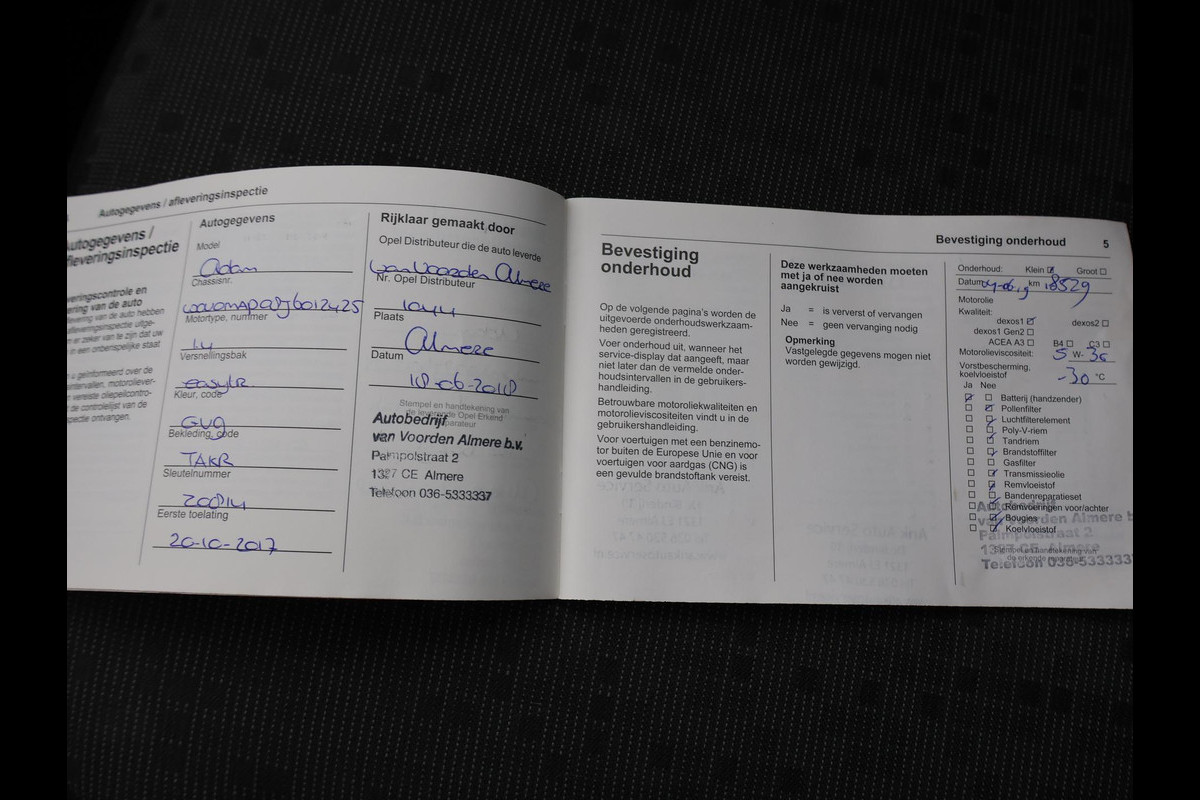 Autogegevens / afleveringsinspectie
utogegevens /
fleveringsinspectie
veringscontrole en
ering van de auto
Autogegevens
Model
Adam
Chassisnr.
Motortype, nummer
1.4
Versnellingsbak
easytr.
Kleur, code
GUG
Bekleding, code
TAKR
Sleutelnummer
Eerste toelating
20-10-2017
Rijklaar gemaakt door
Opel Distributeur die de auto leverde
van Voorden Almere
Nr. Opel Distributeur
1044
Plaats
Almere
Datum
18-06-2018
Stempel en handtekening van
de leverende Opel Erkend
Reparateur
Autobedrijf
van Voorden Almere b.v.
Palmpolstraat 2
1327 CE Almere
Telefoon 036-5333337
Bevestiging onderhoud 5
Bevestiging
onderhoud
Op de volgende pagina's worden de
uitgevoerde onderhoudswerkzaam-
heden geregistreerd.
Voer onderhoud uit, wanneer het
service-display dat aangeeft, maar
niet later dan de vermelde onder-
houdsintervallen in de gebruikers-
handleiding.
Betrouwbare motoroliekwaliteiten en
motorolieviscositeiten vindt u in de
gebruikershandleiding.
Voor voertuigen met een benzinemo-
tor buiten de Europese Unie en voor
voertuigen voor aardgas (CNG) is
een gevulde brandstoftank vereist.
Deze werkzaamheden moeten
met ja of nee worden
aangekruist
Ja = is ververst of vervangen
Nee = geen vervanging nodig
Opmerking
Vastgelegde gegevens mogen niet
worden gewijzigd.
Onderhoud: Klein Groot
Datum km 18529
Motorolie
Kwaliteit:
dexos1 dexos2
dexos1 Gen2
ACEA A3 B4 C3
Motorolieviscositeit: 5 W- 30
Vorstbescherming,
koelvloeistof -30 °C
Ja Nee
Batterij (handzender)
Pollenfilter
Luchtfilterelement
Poly-V-riem
Tandriem
Brandstoffilter
Gasfilter
Transmissieolie
Remvloeistof
Bandenreparatieset
Remvoeringen voor/achter
Bougies
Koelvloeistof
Stempel en handtekening van
de erkende reparateur
Autobedrijf
van Voorden Almere b
Palmpolstraat 2
1327 CE Almere
Telefoon 036-5333337